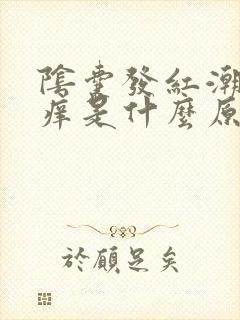 陰囊發紅潮
癢是什麼原
於願足矣